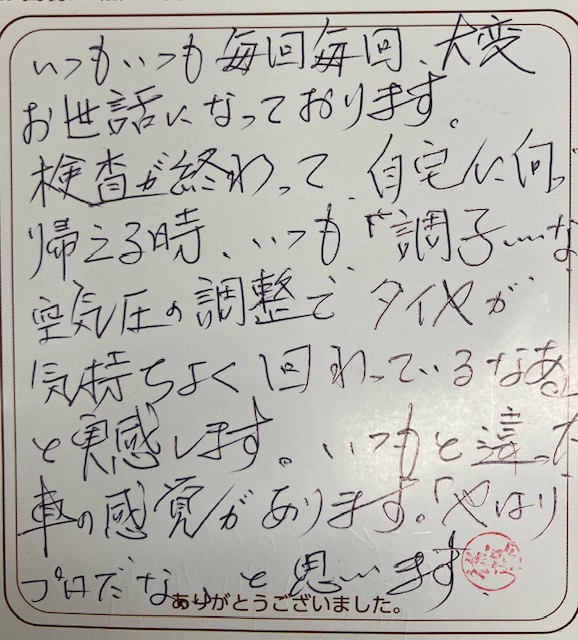 いつもいつも毎回毎回、大変
お世話になっております。
検査が終わって、自宅に向って
帰える時、いつも「調子いいな
空気圧の調整で、タイヤが
気持ちよく回わっているなあ」
と実感します。いつもと違った
車の感覚があります。「やはり
プロだな」と思います。
ありがとうございました。